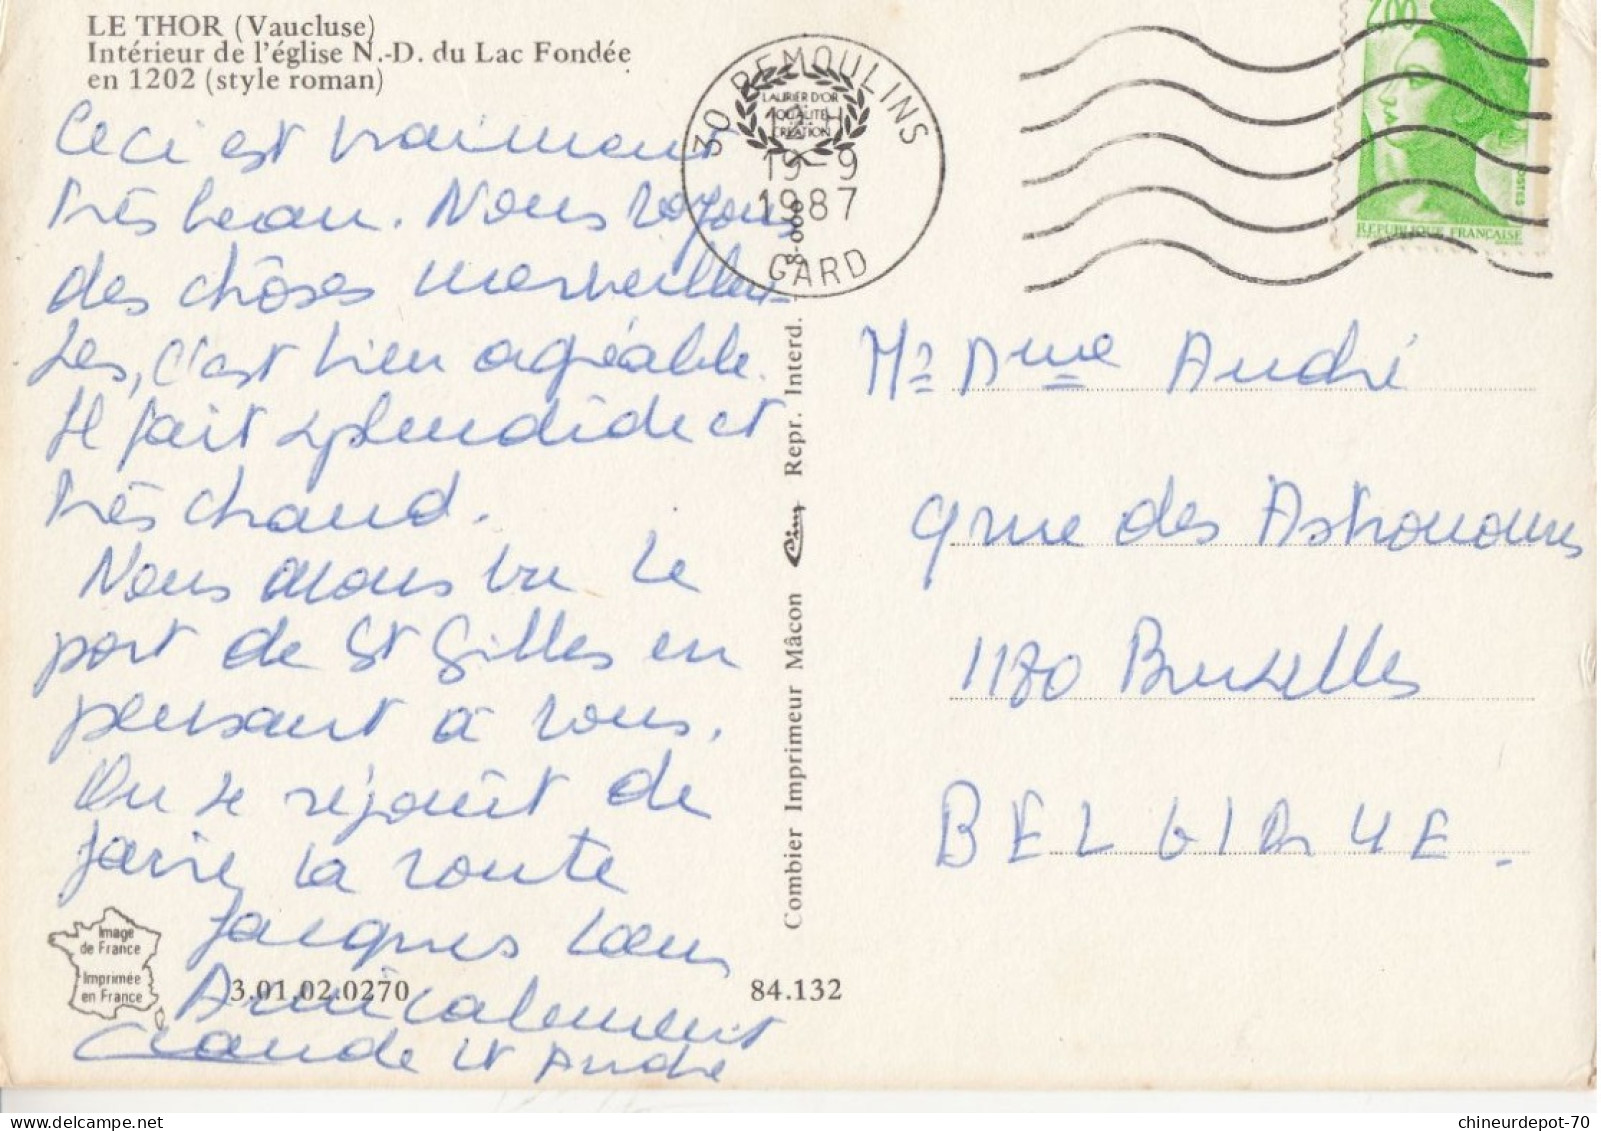 LE THOR (Vaucluse)
Intérieur de l'église N.-D. du Lac Fondée
en 1202 (style roman)
Ceci est vraiment
très beau. Nous voyons
des chôses merveilleu-
ses, c'est bien agréable.
Il fait splendide et
très chaud.
Nous avons vu le
port de St Gilles en
pensant à vous.
On se réjouit de
faire la route
Jacques
Amicalement
Claude et André
Image
de France
Imprimée
en France
3.01.02.0270
84.132
Combier Imprimeur Mâcon Cim Repr. Interd. -
30 REMOULINS
LAURIER D'OR
QUALITE
CREATION
19-9
1987
GARD
2,00
POSTES
REPUBLIQUE FRANÇAISE
Mr Mme André
9 rue des Astronomes
1180 Bruxelles
BELGIQUE.
chineurdepot-70